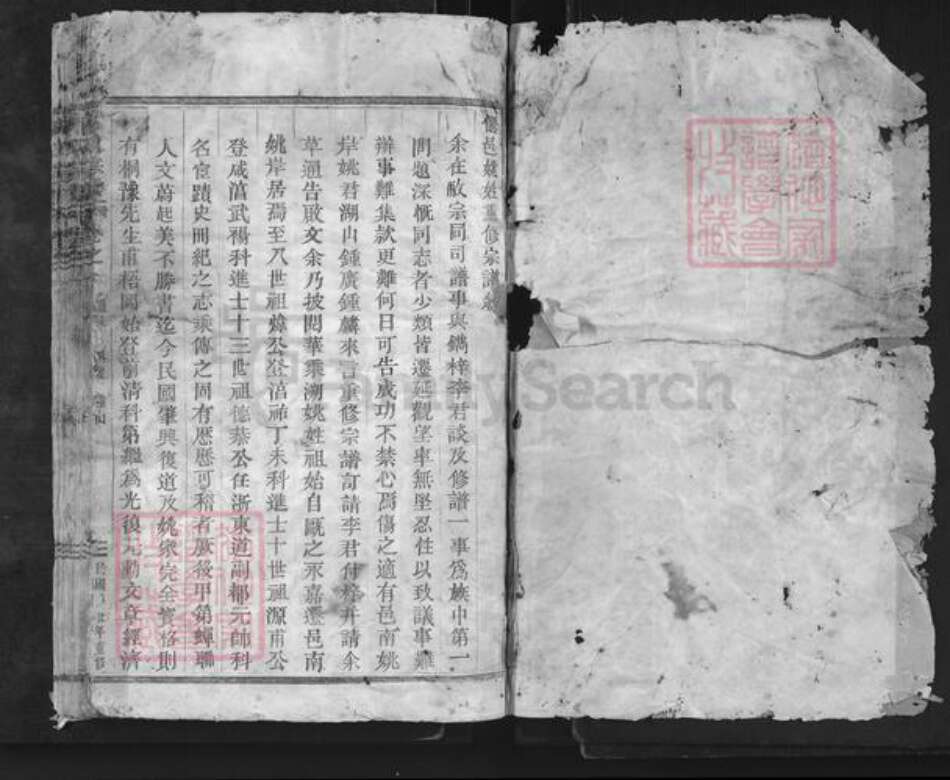 邑姚姓重修宗譜叙
余在敝宗同司譜事與鐫梓李君談及修譜一事為族中第一
問題深慨同志者少類皆遷延觀望率無堅忍性以致議事難
辦事難集款更難何日可告成功不禁心焉傷之適有邑南姚
岸姚君湖冉鍾廣鍾麟來言重修宗譜訂請李君付梓并請余
草通告啟文余乃披閱華乘溯姚姓祖始自甌之永嘉遷邑南
姚岸居焉至八世祖煒公登淳祐丁未科進士十世祖源甫公
登咸淳武舉科進士十三世祖德恭公任浙東道副都元帥科
名宦蹟史冊紀之志乘傳之固有歷歷可稽者厥後甲第蟬聯
人文蔚起美不勝書迄今民國肇興復道及姚眾完全資格則
有桐豫先生甫梧岡始登前清科第繼為光復元勳文章經濟
FamilySearch